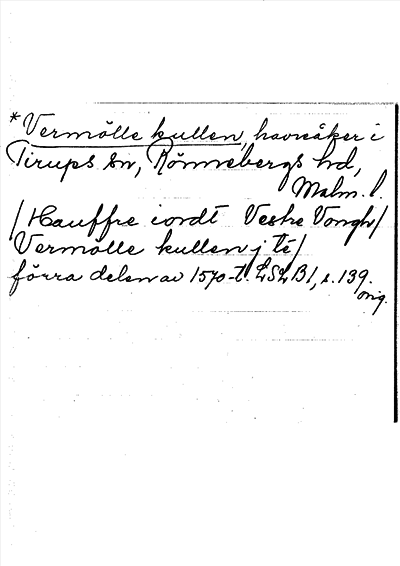 *Vermölle kullen, havreåker i
Tirups sn, Rönnebergs hd,
Malm. l.
/Hauffre iordt Vestre Vongh/
Vermölle kullen j té/
förra delen av 1570-t. LSLB1, s. 139.
orig.